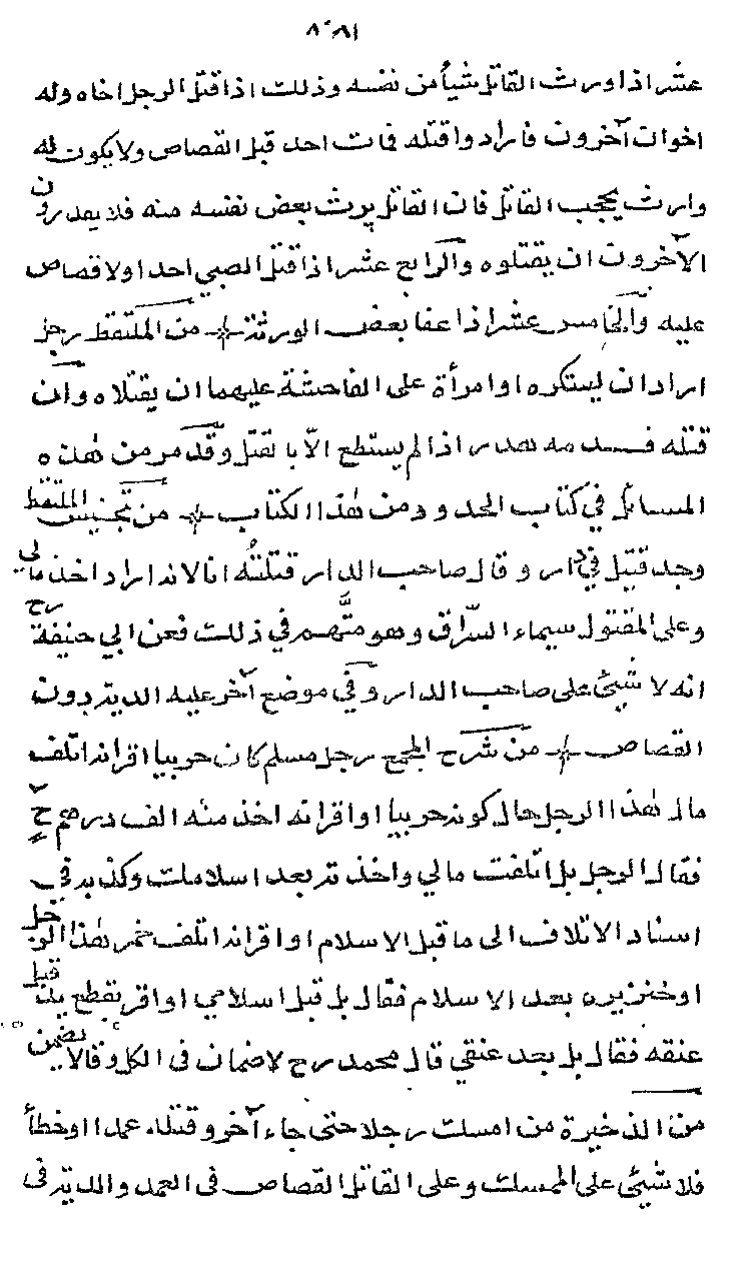 ٨٠٨١
عشر اذا ورث القاتل شيأ من نفسه وذلك اذا قتل الرجل اخاه وله
اخوان آخرون فارادوا قتله فمات احد قبل القصاص ولا يكون له
وارث يحجب القاتل فان القاتل يرث بعض نفسه منه فلا يقدرون
الآخرون ان يقتلوه والرابع عشر اذا قتل الصبي احدا ولا قصاص
عليه والخامس عشر اذا عفا بعض الورثة من الملتقط رجل
اراد ان يستكره او امرأة على الفاحشة عليهما ان يقتلاه وان
قتله فدمه هدر اذا لم يستطع الّا بالقتل وقد مر من هذه
المسائل في كتاب الحدود ومن هذا الكتاب من تجنيس الملتقط
وجد قتيل في دار وقال صاحب الدار قتلته انا لانه اراد اخذ مالي
وعلى المقتول سيماء السرّاق وهو متّهم في ذلك فعن ابي حنيفة رح
انه لا شيئ على صاحب الدار وفي موضع آخر عليه الدية دون
القصاص من شرح المجمع رجل مسلم كان حربيا اقر انه اتلف
مال هذا الرجل حال كونه حربيا او اقر انه اخذ منه الف درهم ح
فقال الرجل بل اتلفت مالي واخذته بعد اسلامك وكذبه في
اسناد الاتلاف الى ما قبل الاسلام او اقر انه اتلف خمر هذا الرجل
او خنزيره بعد الاسلام فقال بل قبل اسلامي او اقر بقطع يده قبل
عتقه فقال بل بعد عتقي قال محمد رح لا ضمان في الكل وقالا يضمن
من الذخيرة من امسك رجلا حتى جاء آخر وقتله عمدا او خطأ
فلا شيئ على الممسك وعلى القاتل القصاص في العمد والدية في